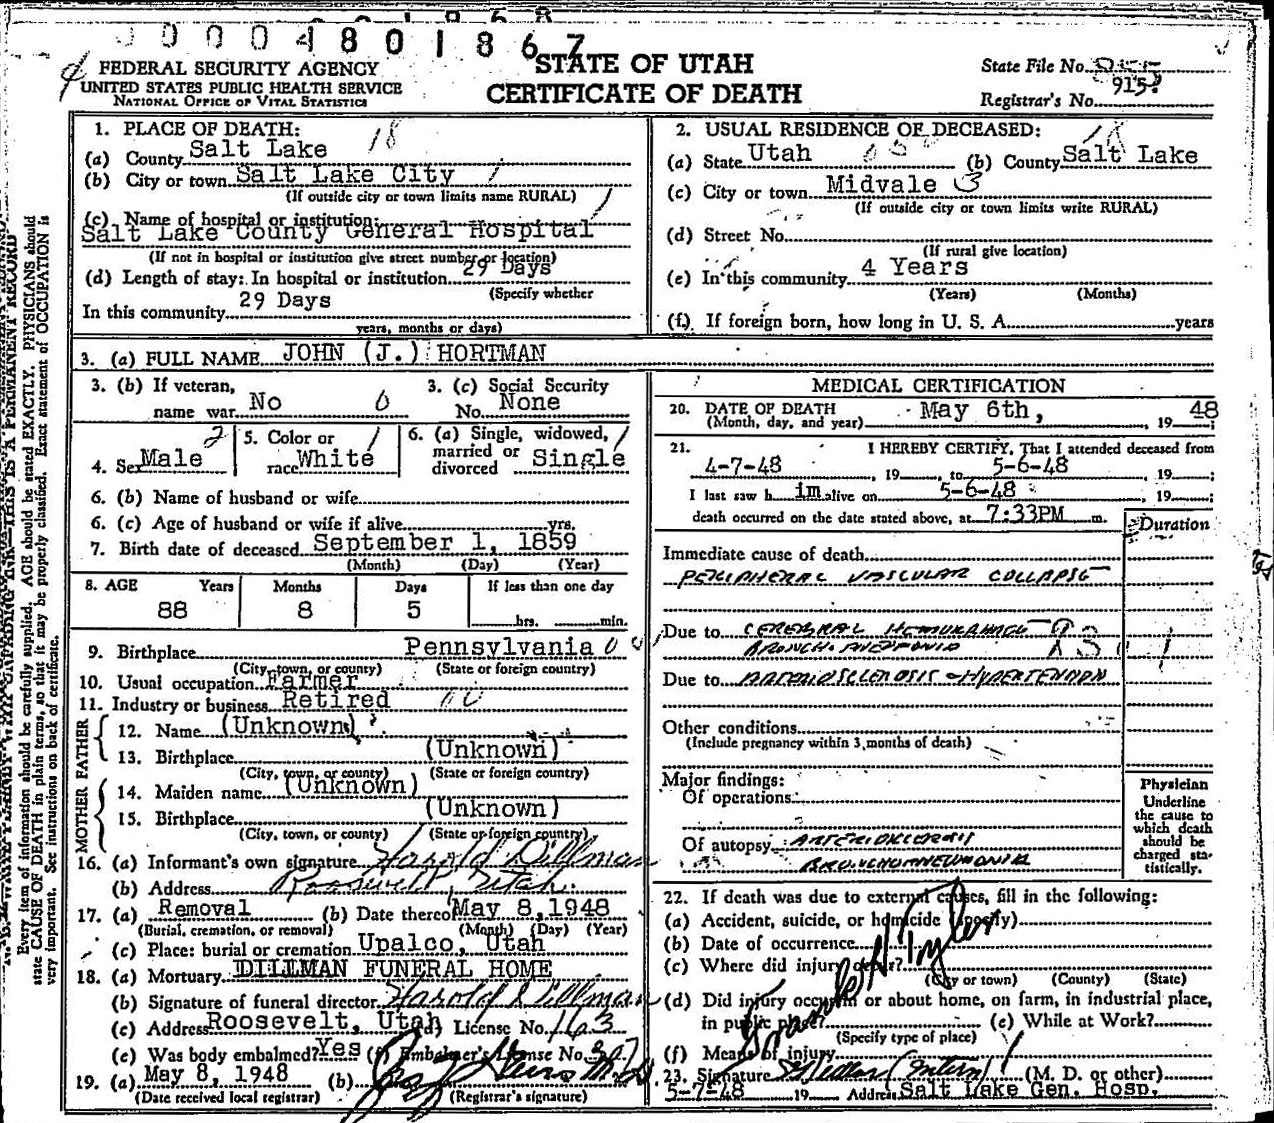 00004801867
FEDERAL SECURITY AGENCY
UNITED STATES PUBLIC HEALTH SERVICE
NATIONAL OFFICE OF VITAL STATISTICS
STATE OF UTAH
CERTIFICATE OF DEATH
State File No.
Registrar's No. 915
1. PLACE OF DEATH: 18
(a) County Salt Lake
(b) City or town Salt Lake City
(If outside city or town limits name RURAL)
(c) Name of hospital or institution:
Salt Lake County General Hospital
(If not in hospital or institution give street number or location)
(d) Length of stay: In hospital or institution 29 Days
(Specify whether
In this community 29 Days
years, months or days)
2. USUAL RESIDENCE OF DECEASED: 18
(a) State Utah (b) County Salt Lake
(c) City or town Midvale 3
(If outside city or town limits write RURAL)
(d) Street No.
(If rural give location)
(e) In this community 4 Years
(Years) (Months)
(f) If foreign born, how long in U. S. A. years
3. (a) FULL NAME JOHN (J.) HORTMAN
3. (b) If veteran, name war No 0
3. (c) Social Security No. None
4. Sex Male 2
5. Color or race White 1
6. (a) Single, widowed, married or divorced Single 1
6. (b) Name of husband or wife
6. (c) Age of husband or wife if alive yrs.
7. Birth date of deceased September 1, 1859
(Month) (Day) (Year)
8. AGE Years Months Days If less than one day
88 8 5 hrs. min.
9. Birthplace Pennsylvania
(City, town, or county) (State or foreign country)
10. Usual occupation Farmer
11. Industry or business Retired
FATHER
12. Name (Unknown)
13. Birthplace (Unknown)
(City, town, or county) (State or foreign country)
MOTHER
14. Maiden name (Unknown)
15. Birthplace (Unknown)
(City, town, or county) (State or foreign country)
16. (a) Informant's own signature Harold Dillman
(b) Address Roosevelt, Utah.
17. (a) Removal (b) Date thereof May 8, 1948
(Burial, cremation, or removal) (Month) (Day) (Year)
(c) Place: burial or cremation Upalco, Utah
18. (a) Mortuary DILLMAN FUNERAL HOME
(b) Signature of funeral director Harold Dillman
(c) Address Roosevelt, Utah (d) License No. 1163
(e) Was body embalmed? Yes (f) Embalmer's License No.
19. (a) May 8, 1948 (b)
(Date received local registrar) (Registrar's signature)
MEDICAL CERTIFICATION
20. DATE OF DEATH May 6th, 1948
(Month, day, and year)
21. I HEREBY CERTIFY, That I attended deceased from
4-7-48, 19 to 5-6-48, 19 ;
I last saw h im alive on 5-6-48, 19 ;
death occurred on the date stated above, at 7:33PM m.
Duration
Immediate cause of death
PERIPHERAL VASCULAR COLLAPSE
Due to CEREBRAL HEMORRHAGE
BRONCHOPNEUMONIA
Due to ARTERIOSCLEROSIS - HYPERTENSION
Other conditions
(Include pregnancy within 3 months of death)
Major findings:
Of operations
Of autopsy ARTERIOSCLEROSIS
BRONCHOPNEUMONIA
Physician
Underline
the cause to
which death
should be
charged sta-
tistically.
22. If death was due to external causes, fill in the following:
(a) Accident, suicide, or homicide (specify)
(b) Date of occurrence
(c) Where did injury occur?
(City or town) (County) (State)
(d) Did injury occur in or about home, on farm, in industrial place,
in public place? (e) While at Work?
(Specify type of place)
(f) Means of injury
23. Signature (Intern) (M. D. or other)
5-7-48 19 Address Salt Lake Gen. Hosp.
Every item of information should be carefully supplied. AGE should be stated EXACTLY. PHYSICIANS should
state CAUSE OF DEATH in plain terms, so that it may be properly classified. Exact statement of OCCUPATION is
very important. See instructions on back of certificate.